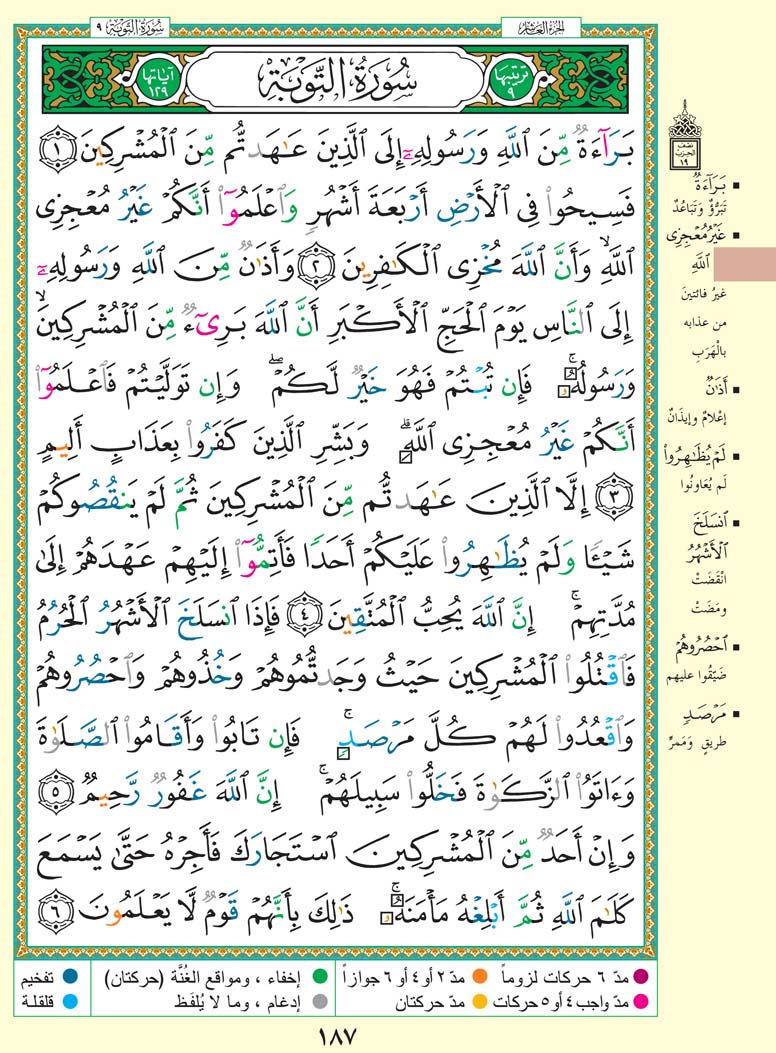 سُورَةُ التَّوْبَةِ ٩
الجزء العاشر
آياتها ١٢٩
سُورَةُ التَّوْبَةِ
ترتيبها ٩
بَرَآءَةٌ مِّنَ ٱللَّهِ وَرَسُولِهِۦٓ إِلَى ٱلَّذِينَ عَٰهَدتُّم مِّنَ ٱلْمُشْرِكِينَ ١
فَسِيحُوا۟ فِى ٱلْأَرْضِ أَرْبَعَةَ أَشْهُرٍ وَٱعْلَمُوٓا۟ أَنَّكُمْ غَيْرُ مُعْجِزِى
ٱللَّهِ ۙ وَأَنَّ ٱللَّهَ مُخْزِى ٱلْكَٰفِرِينَ ٢ وَأَذَٰنٌ مِّنَ ٱللَّهِ وَرَسُولِهِۦٓ
إِلَى ٱلنَّاسِ يَوْمَ ٱلْحَجِّ ٱلْأَكْبَرِ أَنَّ ٱللَّهَ بَرِىٓءٌ مِّنَ ٱلْمُشْرِكِينَ ۙ
وَرَسُولُهُۥ ۚ فَإِن تُبْتُمْ فَهُوَ خَيْرٌ لَّكُمْ ۖ وَإِن تَوَلَّيْتُمْ فَٱعْلَمُوٓا۟
أَنَّكُمْ غَيْرُ مُعْجِزِى ٱللَّهِ ۗ وَبَشِّرِ ٱلَّذِينَ كَفَرُوا۟ بِعَذَابٍ أَلِيمٍ
٣ إِلَّا ٱلَّذِينَ عَٰهَدتُّم مِّنَ ٱلْمُشْرِكِينَ ثُمَّ لَمْ يَنقُصُوكُمْ
شَيْـًٔا وَلَمْ يُظَٰهِرُوا۟ عَلَيْكُمْ أَحَدًا فَأَتِمُّوٓا۟ إِلَيْهِمْ عَهْدَهُمْ إِلَىٰ
مُدَّتِهِمْ ۚ إِنَّ ٱللَّهَ يُحِبُّ ٱلْمُتَّقِينَ ٤ فَإِذَا ٱنسَلَخَ ٱلْأَشْهُرُ ٱلْحُرُمُ
فَٱقْتُلُوا۟ ٱلْمُشْرِكِينَ حَيْثُ وَجَدتُّمُوهُمْ وَخُذُوهُمْ وَٱحْصُرُوهُمْ
وَٱقْعُدُوا۟ لَهُمْ كُلَّ مَرْصَدٍ ۚ فَإِن تَابُوا۟ وَأَقَامُوا۟ ٱلصَّلَوٰةَ
وَءَاتَوُا۟ ٱلزَّكَوٰةَ فَخَلُّوا۟ سَبِيلَهُمْ ۚ إِنَّ ٱللَّهَ غَفُورٌ رَّحِيمٌ ٥
وَإِنْ أَحَدٌ مِّنَ ٱلْمُشْرِكِينَ ٱسْتَجَارَكَ فَأَجِرْهُ حَتَّىٰ يَسْمَعَ
كَلَٰمَ ٱللَّهِ ثُمَّ أَبْلِغْهُ مَأْمَنَهُۥ ۚ ذَٰلِكَ بِأَنَّهُمْ قَوْمٌ لَّا يَعْلَمُونَ ٦
نصف
الحزب
١٩
▪ بَرَآءَةٌ
تَبَرُّؤٌ وَتَبَاعُدٌ
▪ غَيْرُ مُعْجِزِى
ٱللَّهِ
غيرُ فائتين
من عذابه
بالْهَرَبِ
▪ أَذَٰنٌ
إعْلامٌ وإيذَانٌ
▪ لَمْ يُظَٰهِرُوا۟
لَم يُعَاوِنُوا
▪ ٱنسَلَخَ
ٱلْأَشْهُرُ
انْقَضَتْ
ومَضَتْ
▪ ٱحْصُرُوهُمْ
ضَيِّقُوا عليهم
▪ مَرْصَدٍ
طريقٍ وَمَمرٍّ
مدّ ٦ حركات لزوماً
مدّ ٢ أو ٤ أو ٦ جوازاً
إخفاء ، ومواقع الغُنَّة (حركتان)
تفخيم
مدّ واجب ٤ أو ٥ حركات
مدّ حركتان
إدغام ، وما لا يُلفَظ
قلقلة
١٨٧